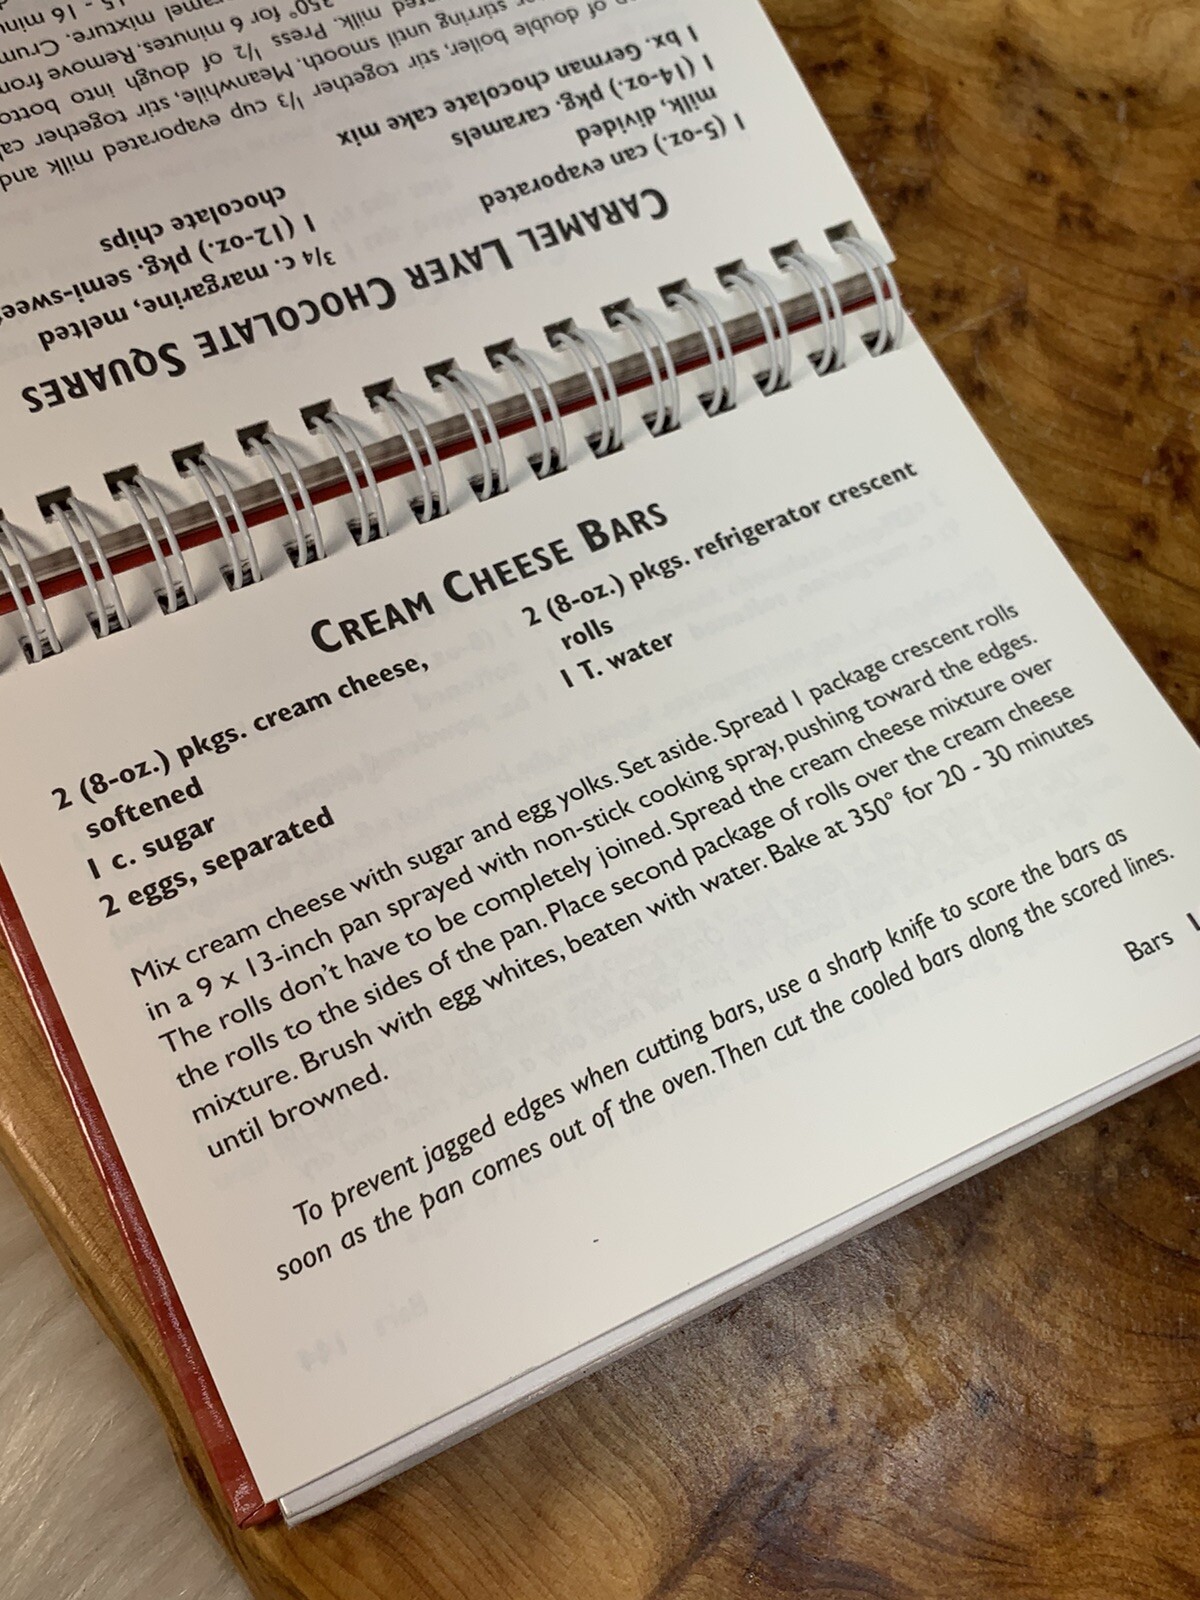 CARAMEL LAYER CHOCOLATE SQUARES
1 (5-oz.) can evaporated
milk, divided
1 (14-oz.) pkg. caramels
1 bx. German chocolate cake mix
3/4 c. margarine, melted
1 (12-oz.) pkg. semi-sweet
chocolate chips
of double boiler, stir together 1/3 cup evaporated milk and
stirring until smooth. Meanwhile, stir together
milk. Press 1/2 of dough into
350° for 6 minutes. Remove from
mixture.
15 - 16
CREAM CHEESE BARS
2 (8-oz.) pkgs. cream cheese,
softened
1 c. sugar
2 eggs, separated
2 (8-oz.) pkgs. refrigerator crescent
rolls
1 T. water
Mix cream cheese with sugar and egg yolks. Set aside. Spread 1 package crescent rolls
in a 9 x 13-inch pan sprayed with non-stick cooking spray, pushing toward the edges.
The rolls don't have to be completely joined. Spread the cream cheese mixture over
the rolls to the sides of the pan. Place second package of rolls over the cream cheese
mixture. Brush with egg whites, beaten with water. Bake at 350° for 20 - 30 minutes
until browned.
To prevent jagged edges when cutting bars, use a sharp knife to score the bars as
soon as the pan comes out of the oven. Then cut the cooled bars along the scored lines.
Bars